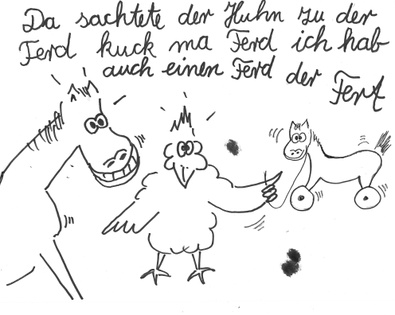 Da sachtete der Huhn zu der
Ferd kuck ma Ferd ich hab
auch einen Ferd der
Fert